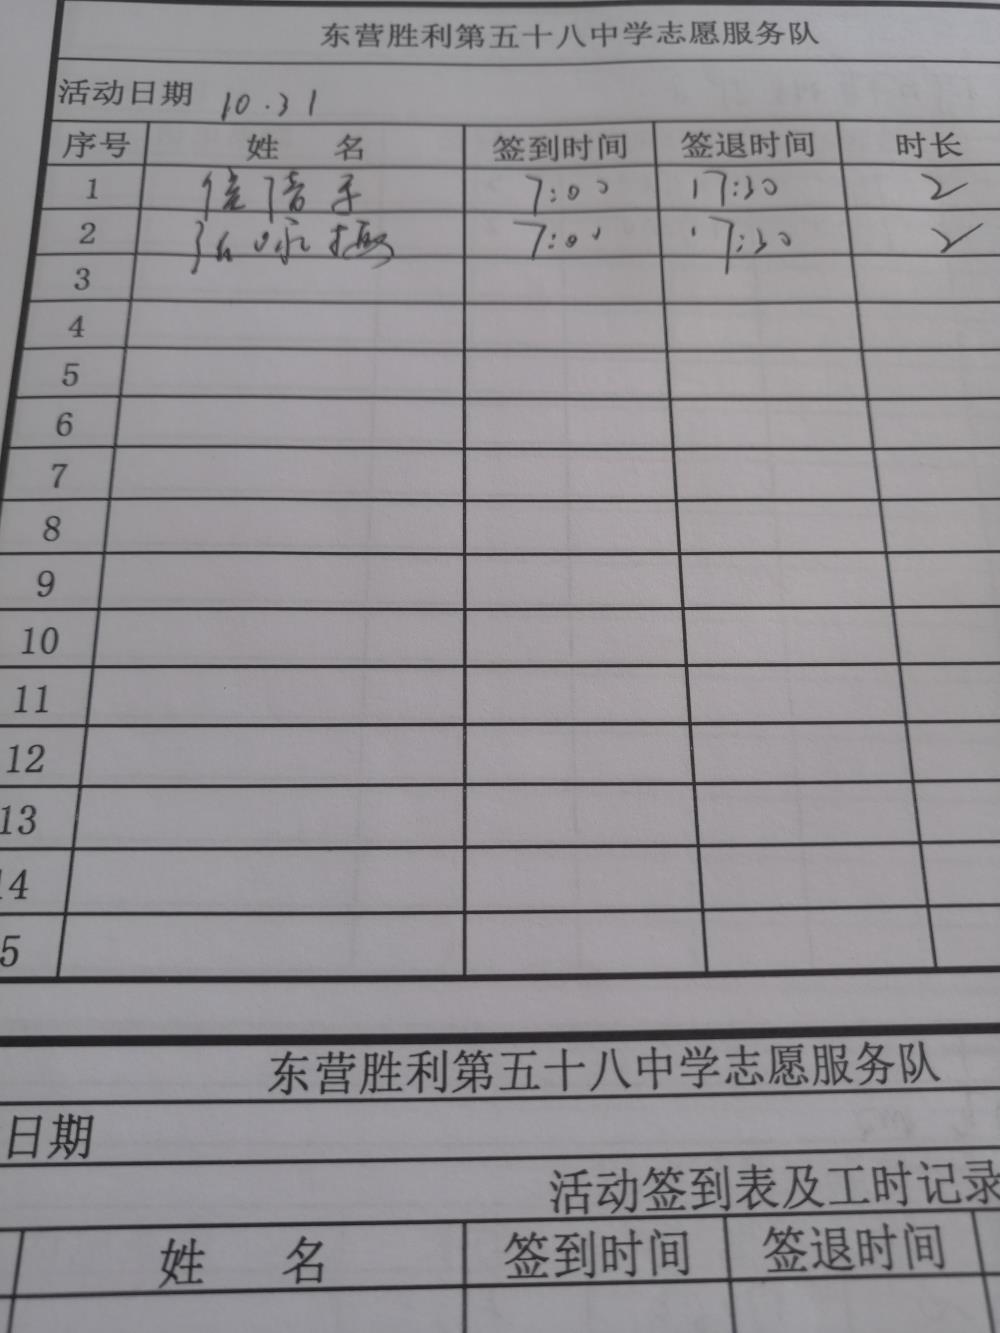 东营胜利第五十八中学志愿服务队
活动日期 10.31
序号 姓 名 签到时间 签退时间 时长
1 7:00 17:30 2
2 7:00 17:30 2
3
4
5
6
7
8
9
10
11
12
13
14
5
东营胜利第五十八中学志愿服务队
日期
活动签到表及工时记录
姓 名 签到时间 签退时间